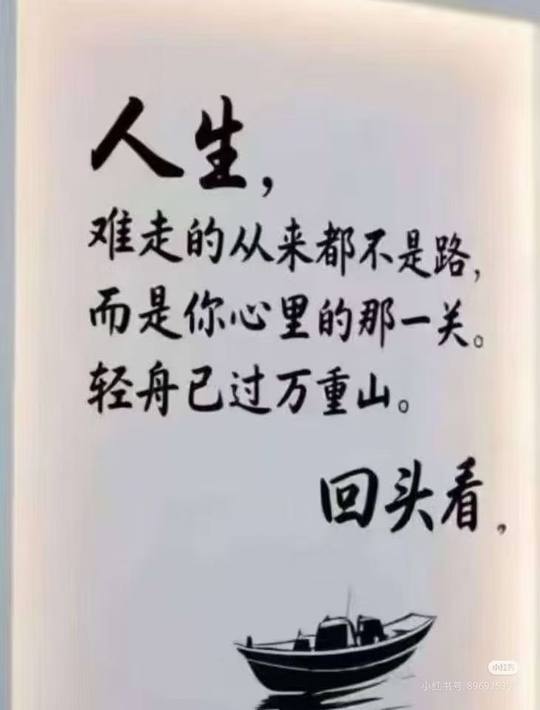 人生，
难走的从来都不是路，
而是你心里的那一关。
轻舟已过万重山。
回头看，
小红书